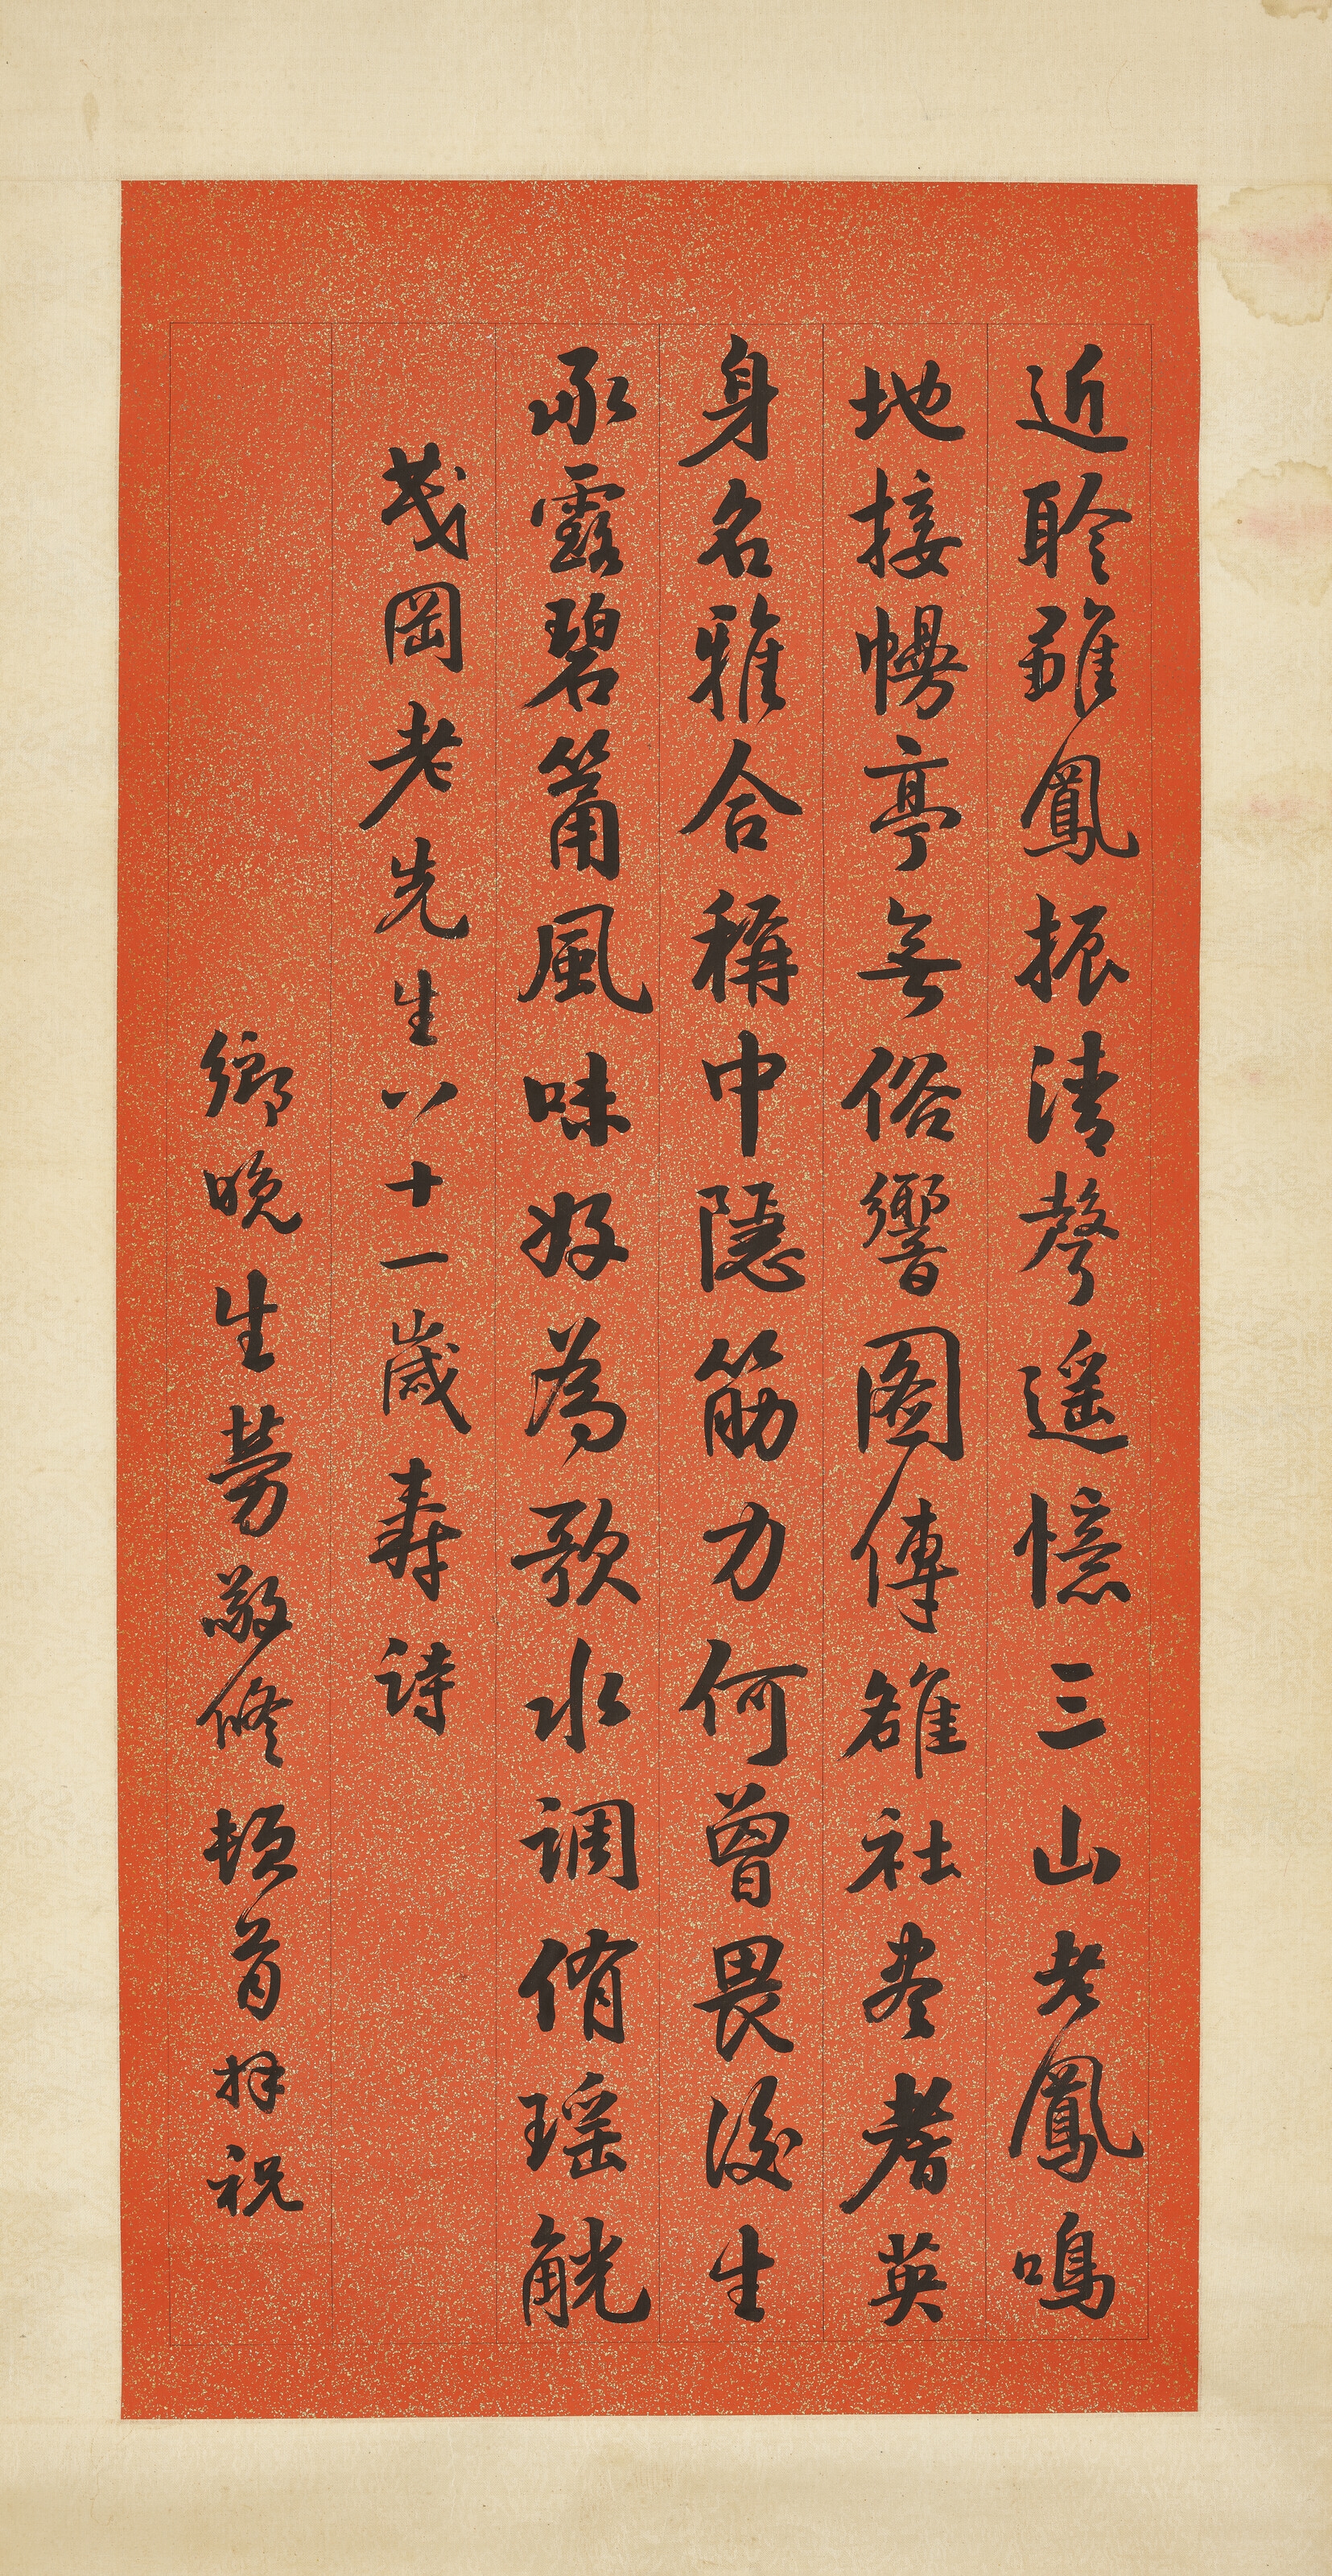 近聆雛鳳振清聲遥憶三山老鳳鳴
地接幔亭無俗響圖傳雒社盡耆英
身名雅合稱中隱筋力何曾畏後生
承露碧筩風味好為歌水調侑瑶觥
茂岡老先生八十一歲壽詩
鄉晚生勞敬修頓首拜祝